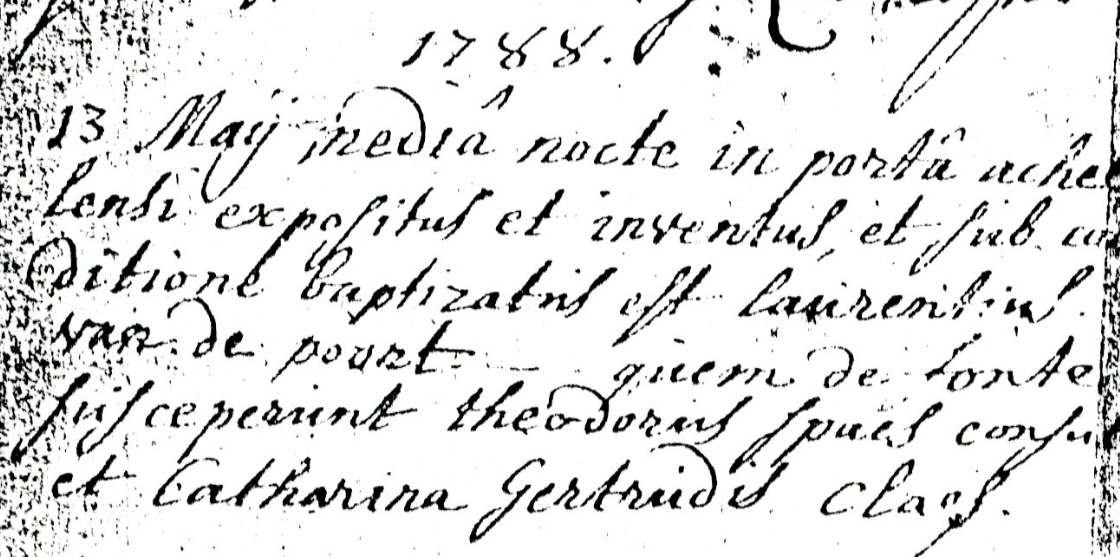 1788.
13 Maÿ mediâ nocte in portâ achel
lensi expositus et inventus, et sub con
ditione baptizatus est laurentius
van de poort quem de fonte
susceperunt theodorus spuels consul
et Catharina Gertrudis Claes.